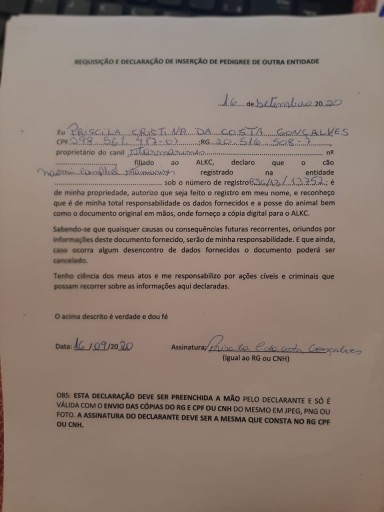 REQUISIÇÃO E DECLARAÇÃO DE INSERÇÃO DE PEDIGREE DE OUTRA ENTIDADE
16 de Setembro 2020
Eu PRISCILA CRISTINA DA COSTA GONÇALVES
CPF ;RG
proprietário do canil nº
filiado ao ALKC, declaro que o cão
registrado na entidade
sob o número de registro ; é
de minha propriedade, autorizo que seja feito o registro em meu nome, e reconheço
que é de minha total responsabilidade os dados fornecidos e a posse do animal bem
como o documento original em mãos, onde forneço a cópia digital para o ALKC.
Sabendo-se que quaisquer causas ou consequências futuras recorrentes, oriundos por
informações deste documento fornecido, serão de minha responsabilidade. E que ainda,
caso ocorra algum desencontro de dados fornecidos o documento poderá ser
cancelado.
Tenho ciência dos meus atos e me responsabilizo por ações cíveis e criminais que
possam recorrer sobre as informações aqui declaradas.
O acima descrito é verdade e dou fé
Data: 16/09/2020 Assinatura: Priscila C da costa Gonçalves
(igual ao RG ou CNH)
OBS: ESTA DECLARAÇÃO DEVE SER PREENCHIDA A MÃO PELO DECLARANTE E SÓ É
VÁLIDA COM O ENVIO DAS CÓPIAS DO RG E CPF OU CNH DO MESMO EM JPEG, PNG OU
FOTO. A ASSINATURA DO DECLARANTE DEVE SER A MESMA QUE CONSTA NO RG CPF
OU CNH.